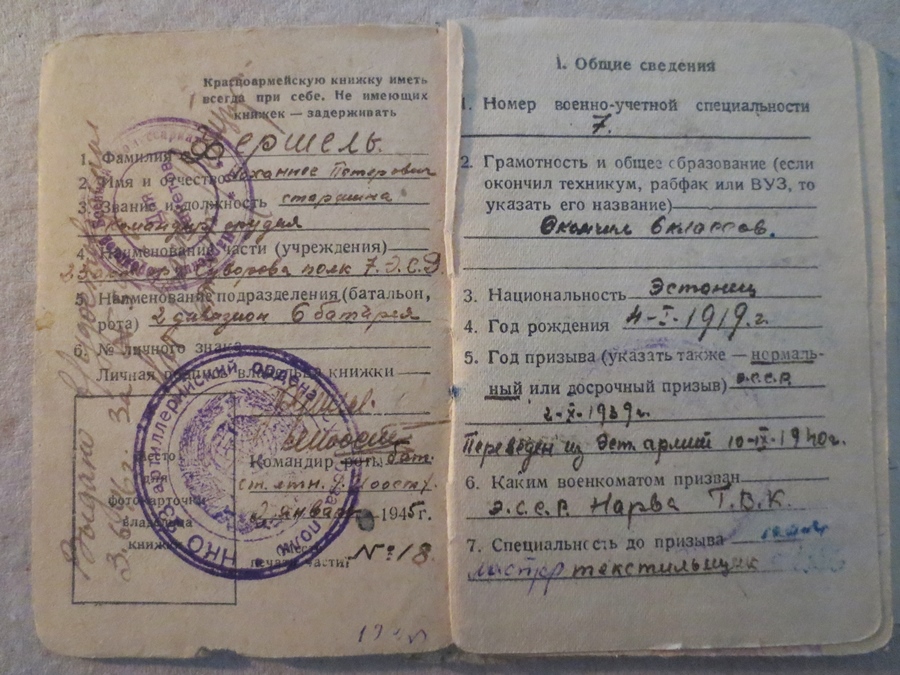 Красноармейскую книжку иметь
всегда при себе. Не имеющих
книжек — задерживать
1. Фамилия Ершель
2. Имя и отчество Йоханнес Петерович
3. Звание и должность старшина
командир орудия
4. Наименование части (учреждения)
23 Суворова полк 7. Э.С.Д.
5. Наименование подразделения (батальон,
рота) 2 дивизион 6 батарея
6. № личного знака
Личная подпись владельца книжки
Место
для
фотокарточки
владельца
книжки
Командир роты бат.
ст. лтн.
2 Января 1945 г.
печать части
№ 18
Выдано Удостоверение
3.6.46 г. За №
НКО артиллерийский ордена полк
1. Общие сведения
1. Номер военно-учетной специальности
7.
2. Грамотность и общее образование (если
окончил техникум, рабфак или ВУЗ, то
указать его название)
Окончил 6 классов.
3. Национальность Эстонец
4. Год рождения 4-I-1919.г.
5. Год призыва (указать также — нормаль-
ный или досрочный призыв) Э.С.С.Р.
2-X-1939г.
Переведен из Эст армий 10-IX-1940г.
6. Каким военкоматом призван
Э.С.С.Р. Нарва Т.В.К.
7. Специальность до призыва
мастер текстильщик